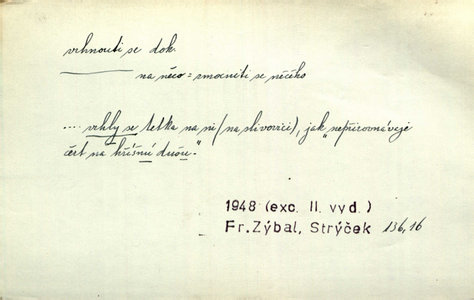 vrhnouti se dok.
na něco = zmocniti se něčeho
.... vrhly se tetka na ni (na slivovici), jak „nepřirovnáveje
čert na hříšnú dušu."
1948 (exc. II. vyd.)
Fr. Zýbal, Strýček 136,16